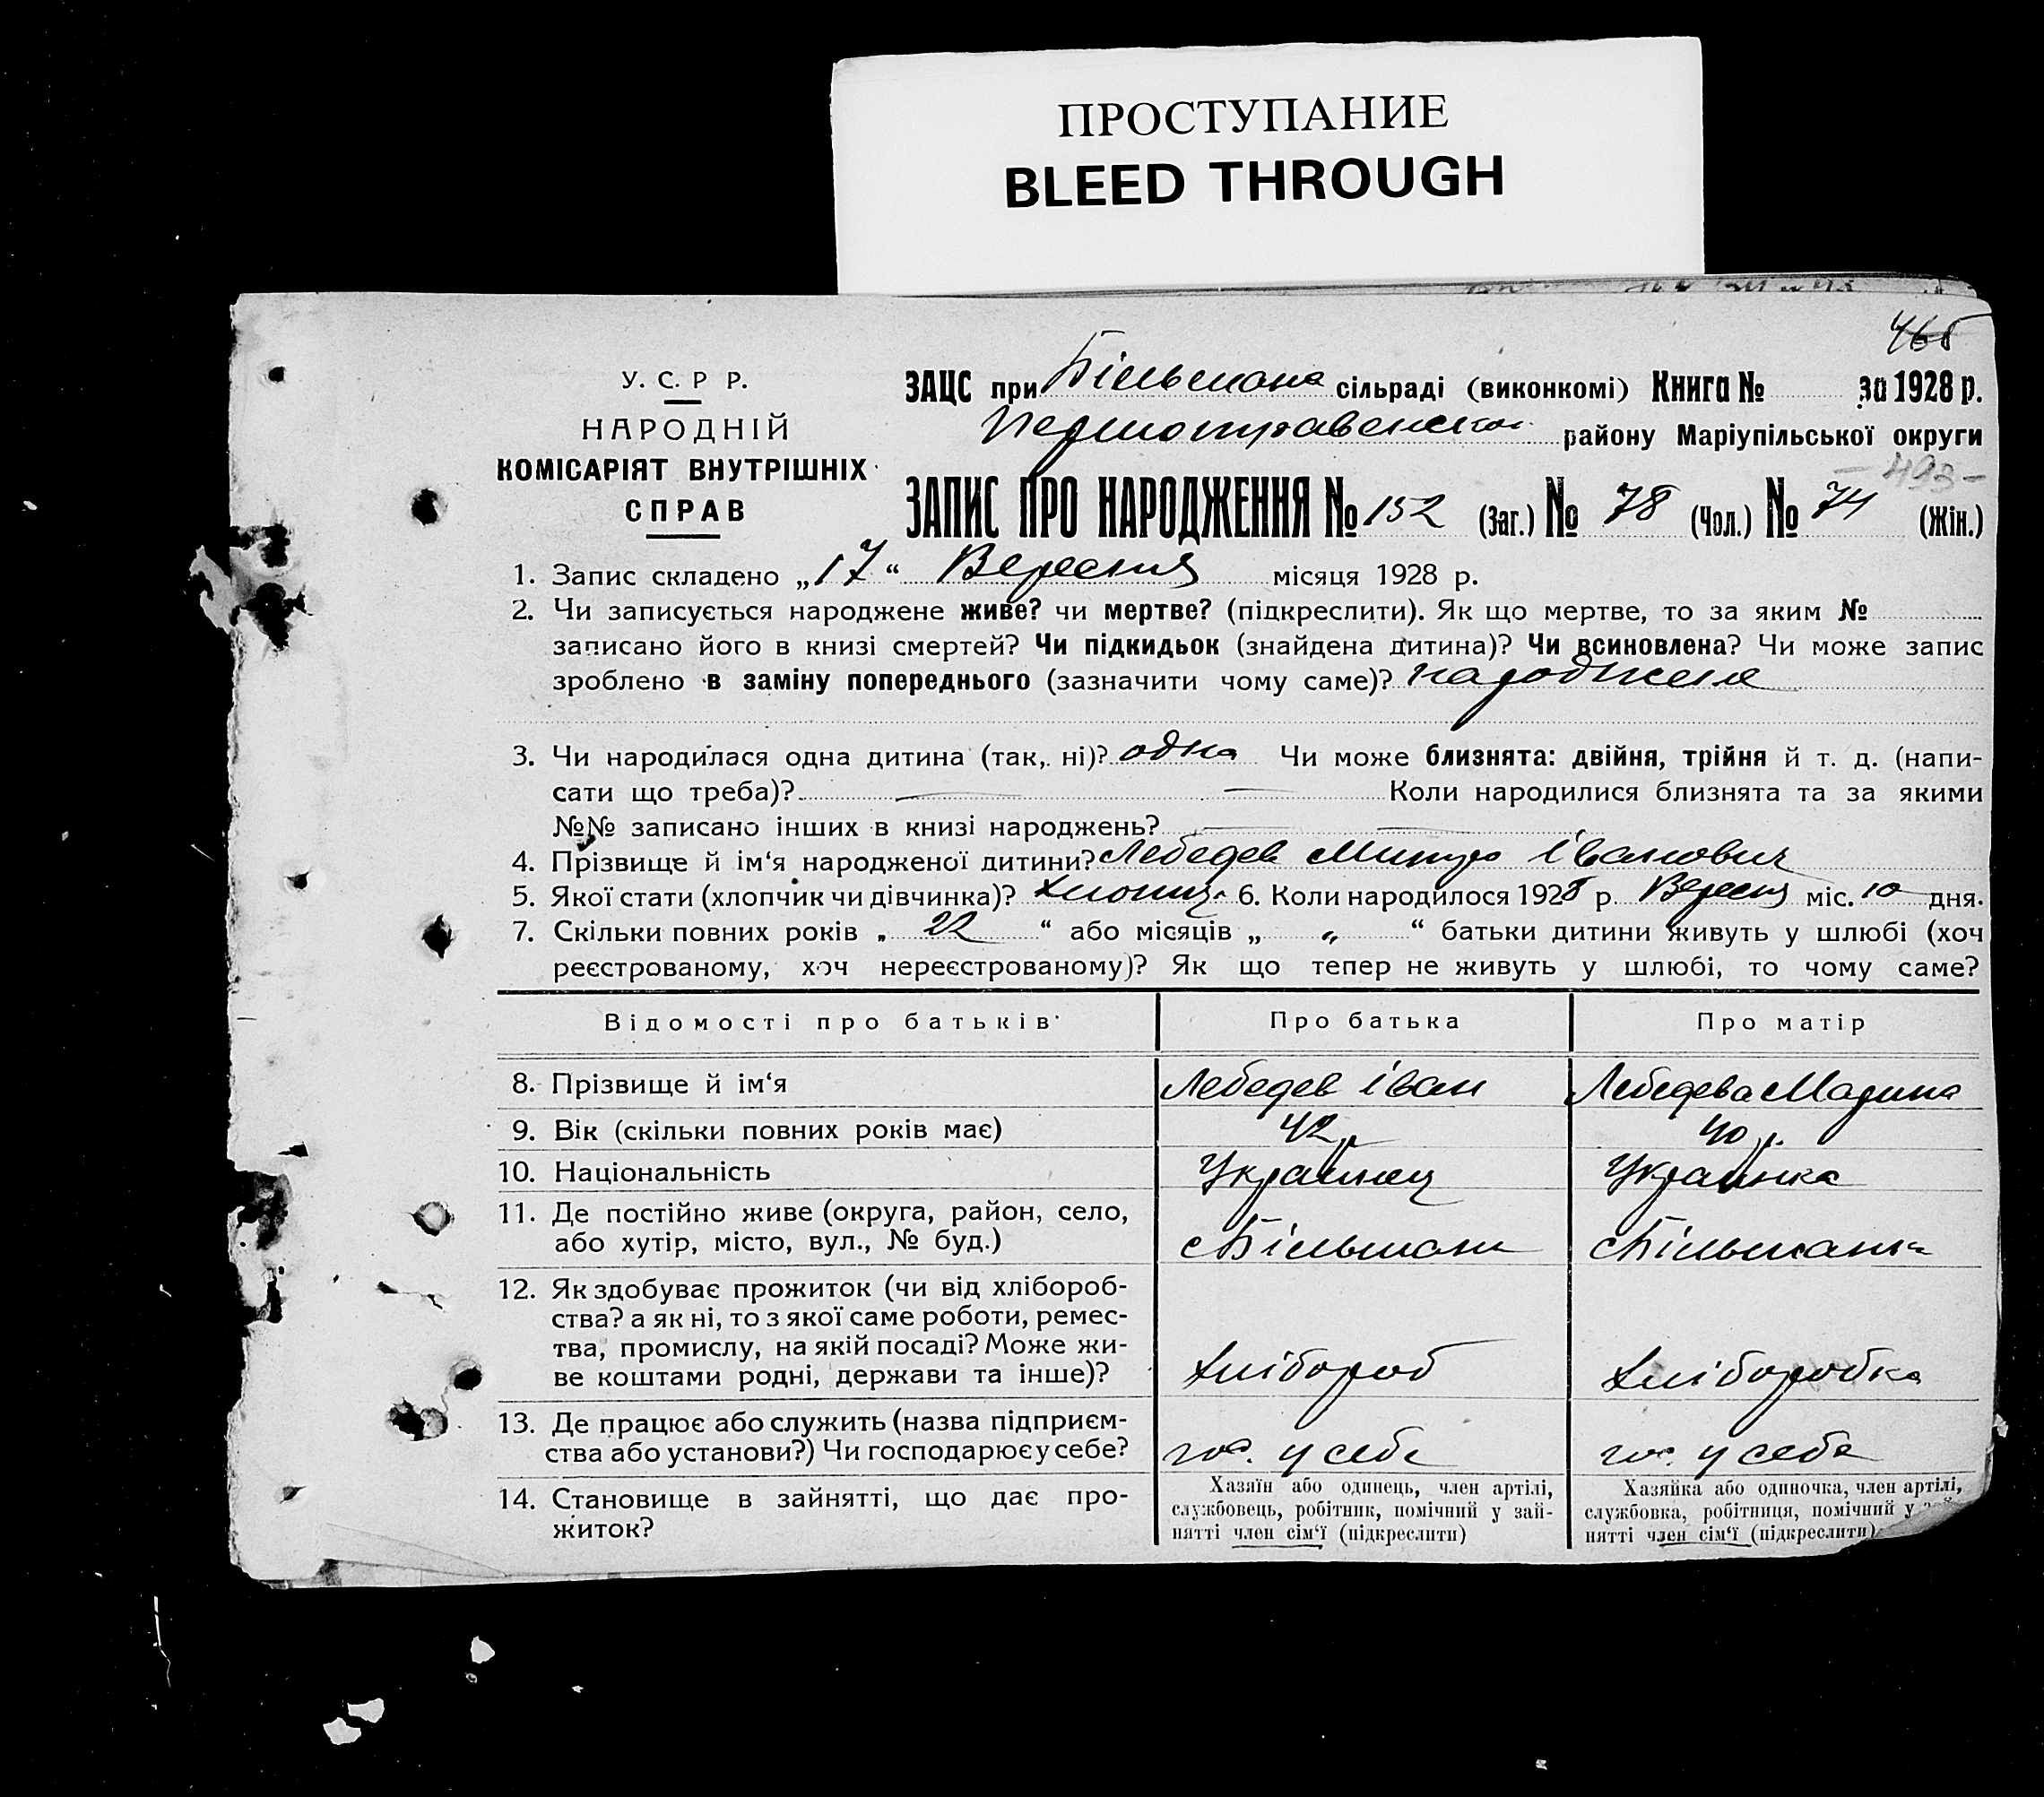 ПРОСТУПАНИЕ
BLEED THROUGH
У. С. Р Р.
НАРОДНІЙ
КОМІСАРІЯТ ВНУТРІШНІХ
СПРАВ
ЗАЦС при сільраді (виконкомі) Книга № за 1928 р.
району Маріупільської округи
- 493 -
ЗАПИС ПРО НАРОДЖЕННЯ № 152 (Заг.) № 78 (Чол.) № 74 (Жін.)
1. Запис складено „17“ Вересня місяця 1928 р.
2. Чи записується народжене живе? чи мертве? (підкреслити). Як що мертве, то за яким №
записано його в книзі смертей? Чи підкидьок (знайдена дитина)? Чи всиновлена? Чи може запис
зроблено в заміну попереднього (зазначити чому саме)?
3. Чи народилася одна дитина (так, ні)? одна Чи може близнята: двійня, трійня й т. д. (напи-
сати що треба)? Коли народилися близнята та за якими
№№ записано інших в книзі народжень?
4. Прізвище й ім‘я народженої дитини? Лебедев Іванович
5. Якої стати (хлопчик чи дівчинка)? 6. Коли народилося 1928 р. Вересня міс. 10 дня.
7. Скільки повних років „ 22 “ або місяців „ „ “ батьки дитини живуть у шлюбі (хоч
реєстрованому, хоч нереєстрованому)? Як що тепер не живуть у шлюбі, то чому саме?
Відомості про батьків Про батька Про матір
8. Прізвище й ім‘я Лебедев Іван Лебедева
9. Вік (скільки повних років має) 42 р 40 р.
10. Національність Українец Українка
11. Де постійно живе (округа, район, село,
або хутір, місто, вул., № буд.)
12. Як здобуває прожиток (чи від хлібороб-
ства? а як ні, то з якої саме роботи, ремес-
тва, промислу, на якій посаді? Може жи-
ве коштами родні, держави та інше)? Хлібороб Хліборобка
13. Де працює або служить (назва підприєм-
ства або установи?) Чи господарює у себе? гос. у себе гос. у себе
14. Становище в зайнятті, що дає про-
житок?
Хазяїн або одинець, член артілі,
службовець, робітник, помічний у зай-
нятті член сім‘ї (підкреслити)
Хазяйка або одиночка, член артілі,
службовка, робітниця, помічний у
нятті член сім‘ї (підкреслити)